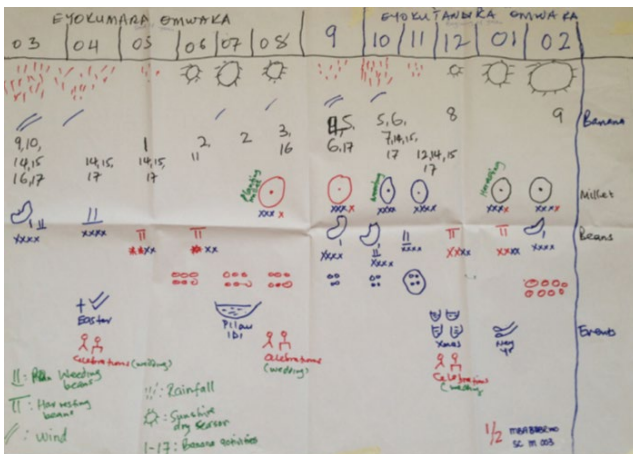 EYOKUMARA OMWAKA
EYOKUTANDIKA OMWAKA
03 04 05 06 07 08 9 10 11 12 01 02
Banana
9,10,
14,15
16,17
14,15,
17
1
14,15,
17
2,
11
2
3,
16
5,
6,17
5,6,
7,14,15,
17
12,14,15,
17
8
9
Millet
xxx x
xxx x
xxxx
xxxx
xxxx
xxxx
Beans
xxxx
xxxx
xx
xx
xxxx
xxxx
xxxx
xxxx
xxxx
xxxx
Events
Easter
IDI
Xmas
Celebrations (wedding)
Celebrations
(wedding)
Celebrations
(wedding
Weeding
beans
Harvesting
beans
Wind
Rainfall
Sunshine
dry season
1-17: Banana activities
1/2